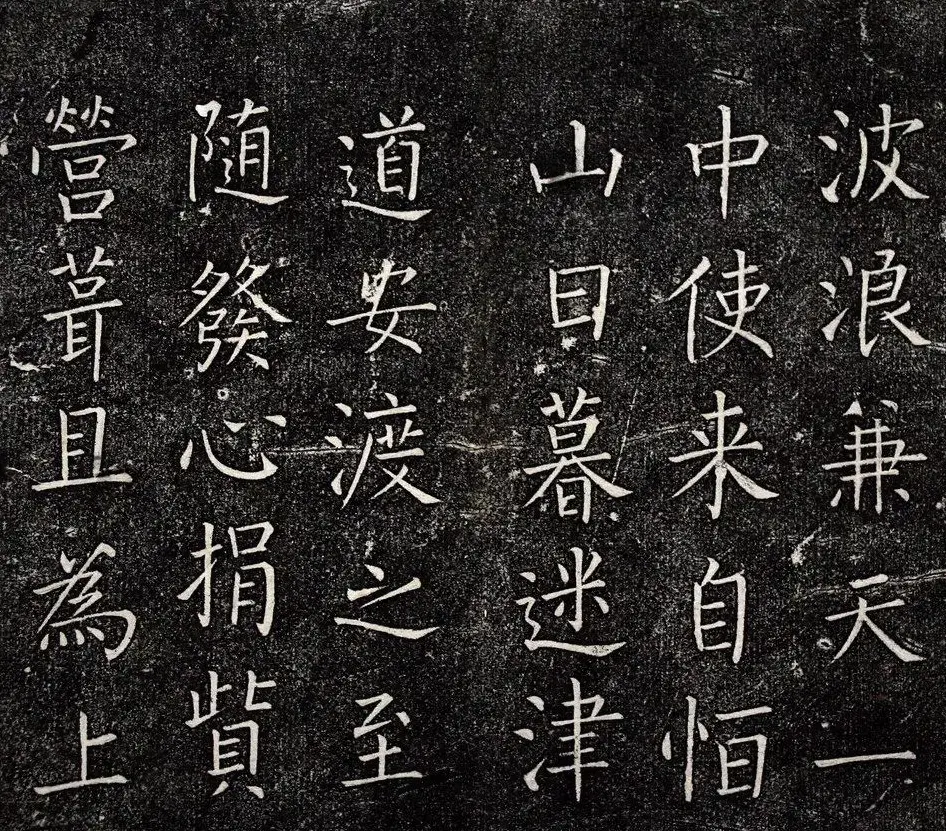 波浪兼天一
中使来自恒
山日暮迷津
道安渡之至
随發心捐貲
營葺且為上